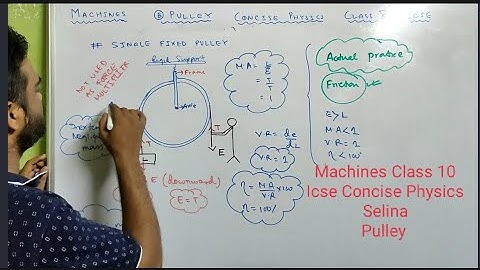 MACHINES
Ⓑ PULLEY
CONCISE PHYSICS
CLASS
# SINGLE FIXED PULLEY
Rigid Support
Frame
Axle
NOT USED
AS FORCE
MULTIPLIER
mass
T
T
E
L
E (downward)
E = T
M.A = L/E
= T/T
= 1
V.R = dE/dL
V.R = 1
η = M.A/V.R × 100
η = 100%
Actual
Friction
E>L
M.A < 1
V.R = 1
η < 100%
Machines Class 10
Icse Concise Physics
Selina
Pulley